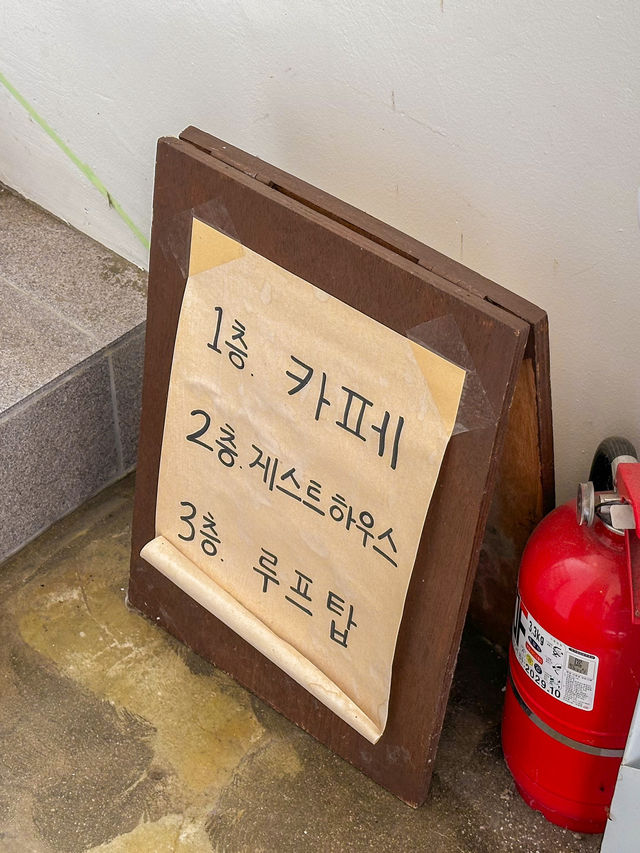 1층. 카페
2층. 게스트하우스
3층. 루프탑
3.3kg
2029.10